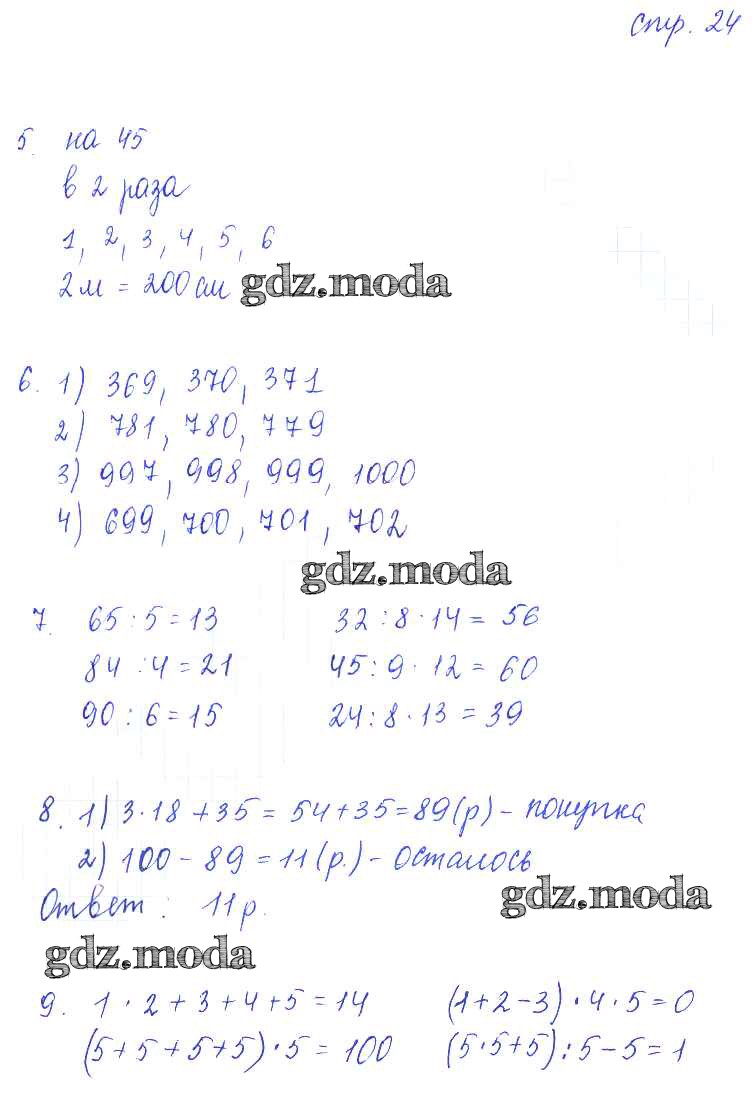 стр. 24
5. на 45
в 2 раза
1, 2, 3, 4, 5, 6
2м = 200см
gdz.moda
6. 1) 369, 370, 371
2) 781, 780, 779
3) 997, 998, 999, 1000
4) 699, 700, 701, 702
gdz.moda
7. 65 : 5 = 13 32 : 8 · 14 = 56
84 : 4 = 21 45 : 9 · 12 = 60
90 : 6 = 15 24 : 8 · 13 = 39
8. 1) 3 · 18 + 35 = 54 + 35 = 89 (р) - покупка
2) 100 - 89 = 11 (р.) - осталось
Ответ : 11 р.
gdz.moda
gdz.moda
9. 1 · 2 + 3 + 4 + 5 = 14 (1 + 2 - 3) · 4 · 5 = 0
(5 + 5 + 5 + 5) · 5 = 100 (5 · 5 + 5) : 5 - 5 = 1